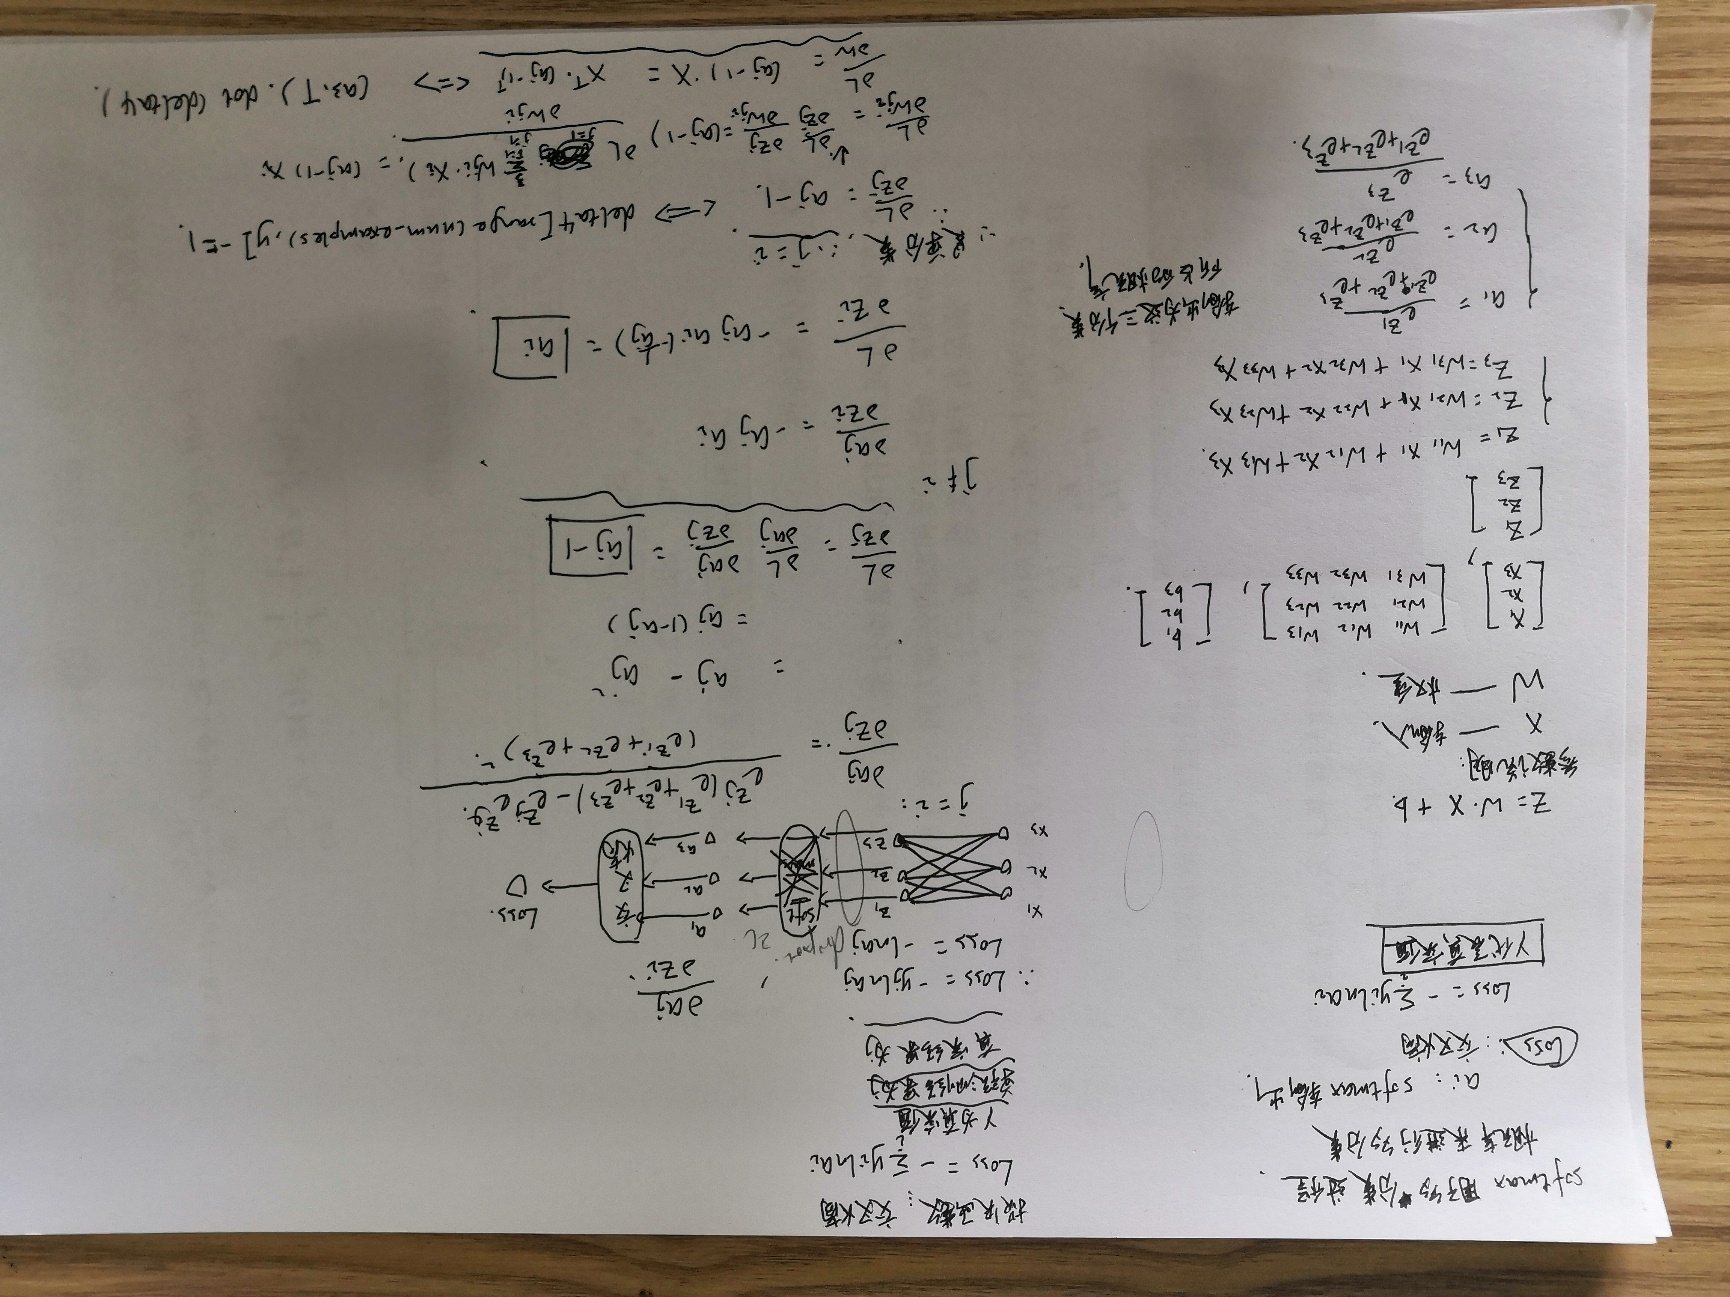 softmax 用于多分类过程.
概率来进行多分类
ai: softmax 输出.
Loss: 交叉熵
Loss = - Σ yi ln ai
i
Y代表真实值
Z = W·X + b.
参数说明:
X — 输入
W — 权值
[x1 x2 x3], [w11 w12 w13 w21 w22 w23 w31 w32 w33], [b1 b2 b3].
[z1 z2 z3]
z1 = w11 x1 + w12 x2 + w13 x3.
z2 = w21 x1 + w22 x2 + w23 x3
z3 = w31 x1 + w32 x2 + w33 x3
a1 = e^z1 / (e^z1 + e^z2 + e^z3)
a2 = e^z2 / (e^z1 + e^z2 + e^z3)
a3 = e^z3 / (e^z1 + e^z2 + e^z3).
输出为这三个分类
所占的概率.
损失函数: 交叉熵
Loss = - Σ yi ln ai
i
Y为真实值
预测结果为j
真实结果为j
∴ Loss = - yj ln aj , ∂aj/∂zi.
Loss = - ln aj
x1 x2 x3
z1 z2 z3
soft
a1 a2 a3
交叉熵
Loss.
j = i:
∂aj/∂zj = (e^zj (e^z1 + e^z2 + e^z3) - e^zj e^zj) / (e^z1 + e^z2 + e^z3)².
= aj - aj²
= aj (1-aj)
∂L/∂zj = ∂L/∂aj ∂aj/∂zj = aj-1
j ≠ i
∂aj/∂zi = - aj ai
∂L/∂zi = - aj ai (-1/aj) = ai
∵ 只单分类, ∴ j = i
∴ ∂L/∂zj = aj-1. <=> delta4[range(num_examples), y] -= 1.
∂L/∂wji = ∂L/∂zj ∂zj/∂wji = (aj-1) ∂( Σ wji·xi)/∂wji = (aj-1) xi
∂L/∂w = (aj-1)·X = X^T·(aj-1) <=> (a3.T).dot(delta4).